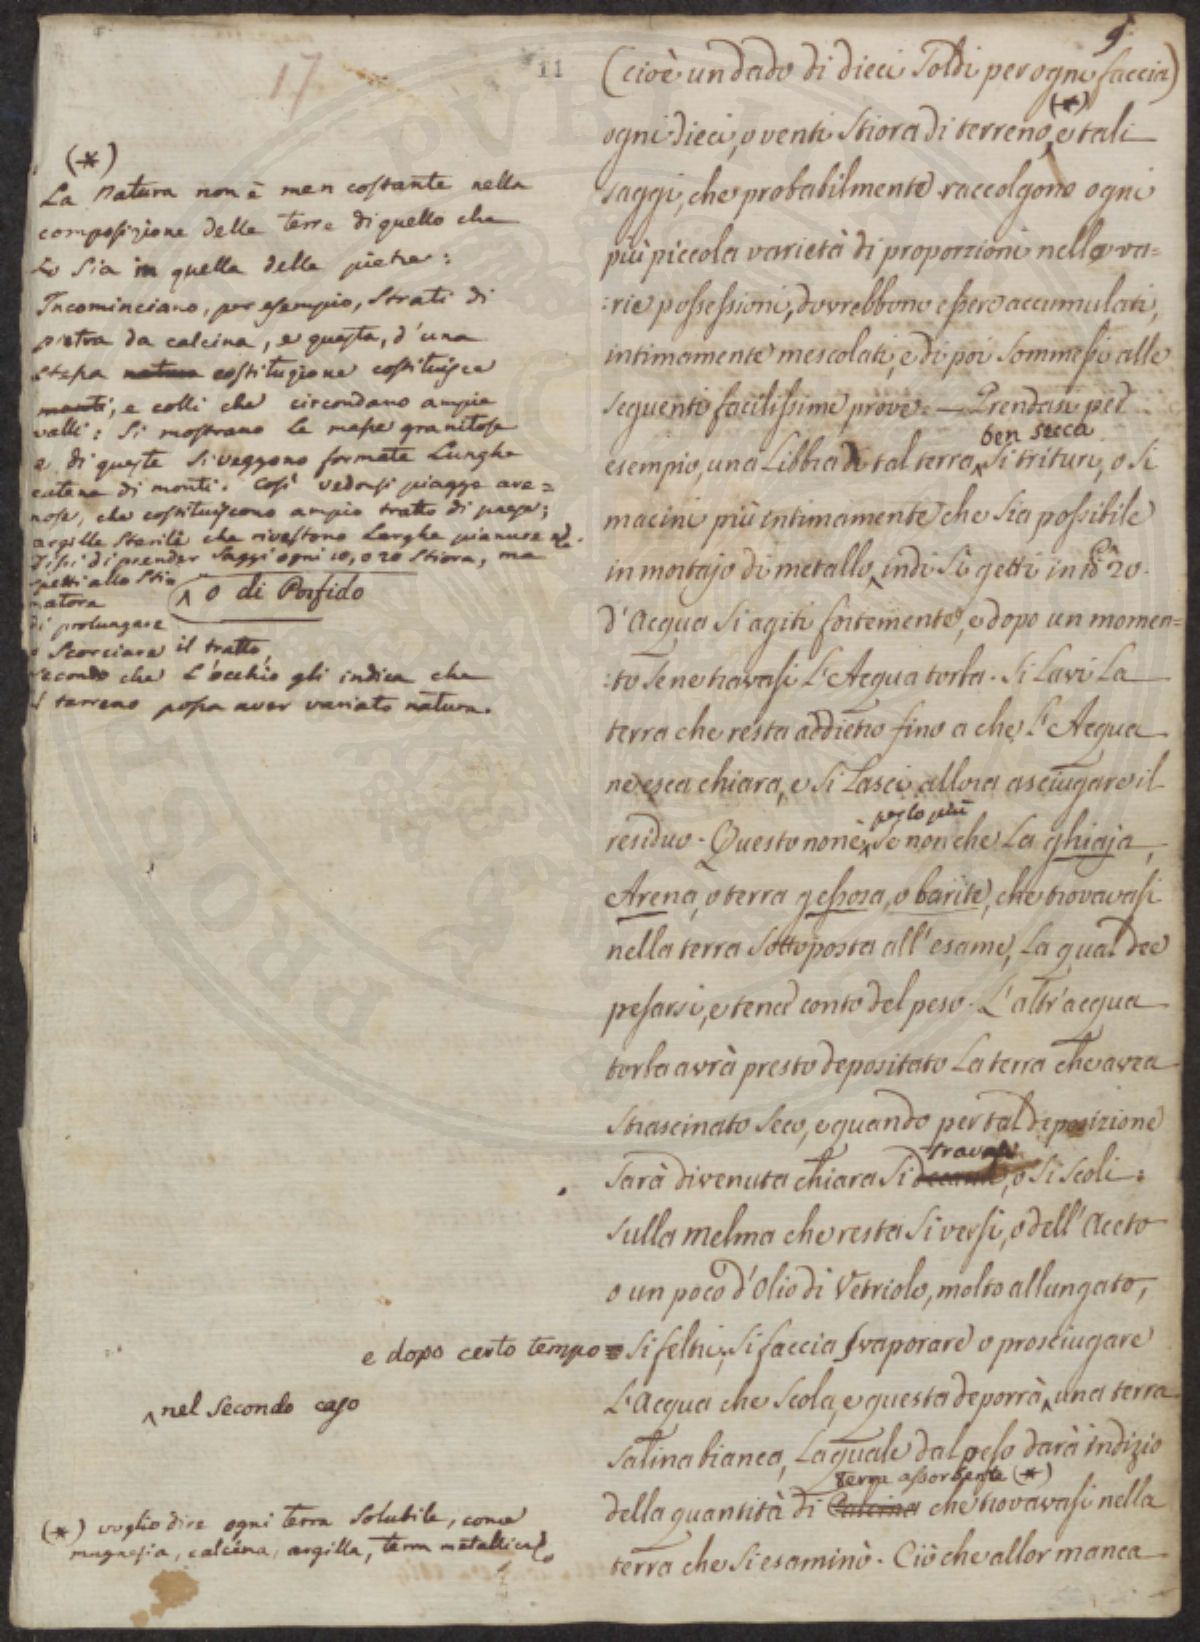 9
17
11
(cioè un dado di dieci soldi per ogni faccia)
ogni dieci, o venti stiora di terreno, (*) e tali
saggi, che probabilmente raccolgono ogni
più piccola varietà di proporzioni nelle va=
:rie possessioni, dovrebbono essere accumulati,
intimamente mescolati, e di poi sommessi alle
seguenti facilissime prove. — Prendasi per
esempio, una Libbra di tal terra ben secca si trituri, o si
macini più intimamente che sia possibile
in mortajo di metallo, indi si getti in 20.
d'Acqua si agiti fortemente, e dopo un momen=
:to se ne travasi l'Acqua torba. Si Lavi La
terra che resta addietro fino a che l'Acqua
ne esca chiara, e si Lasci allora asciugare il
residuo. Questo non è per lo più se non che La ghiaja,
Arena, o terra gessosa, o barite, che trovavasi
nella terra sottoposta all'esame, La qual dee
pesarsi, e tener conto del peso. L'altr'acqua
torba avrà presto depositato La terra che avea
strascinato seco, e quando per tal deposizione
sarà divenuta chiara si decanti travasi, o si scoli:
sulla melma che resta si versi, o dell'Aceto
o un poco d'Olio di Vetriolo, molto allungato,
e dopo certo tempo si feltri, si faccia svaporare o prosciugare
L'Acqua che scola, e questa deporrà una terra
^ nel secondo caso
salina bianca, La quale dal peso darà indizio
della quantità di Calcina terra assorbente (*) che trovavasi nella
terra che si esaminò. Ciò che allor manca
(*)
La Natura non è men costante nella
composizione delle terre di quello che
lo sia in quella delle pietre:
Incominciano, per esempio, strati di
pietra da calcina, e questa, d'una
stessa natura costituzione costituisce
monti, e colli che circondano ampie
valli: si mostrano le masse granitose
e di queste si veggono formate Lunghe
catene di monti. Così vedonsi piagge are=
nose, che costituiscono ampio tratto di paese;
argille sterili che rivestono Larghe pianure
Dissi di prender saggi ogni 10, o 20 stiora, ma
spetti allo
^ o di Porfido
di prolungare
o Scorciare il tratto,
secondo che L'occhio gli indica che
il terreno possa aver variato natura.
(*) voglio dire ogni terra solubile, come
magnesia, calcina, argilla, terra metallica